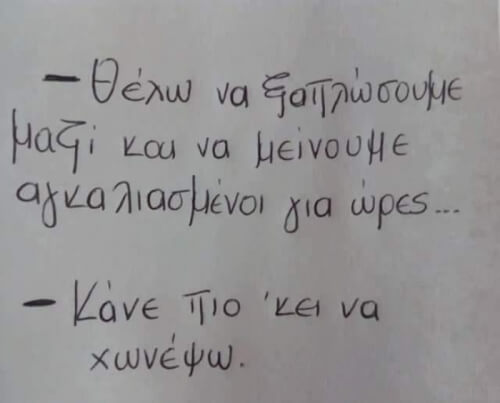 - Θέλω να ξαπλώσουμε
μαζί και να μείνουμε
αγκαλιασμένοι για ώρες...
- Κάνε πιο 'κει να
χωνέψω.